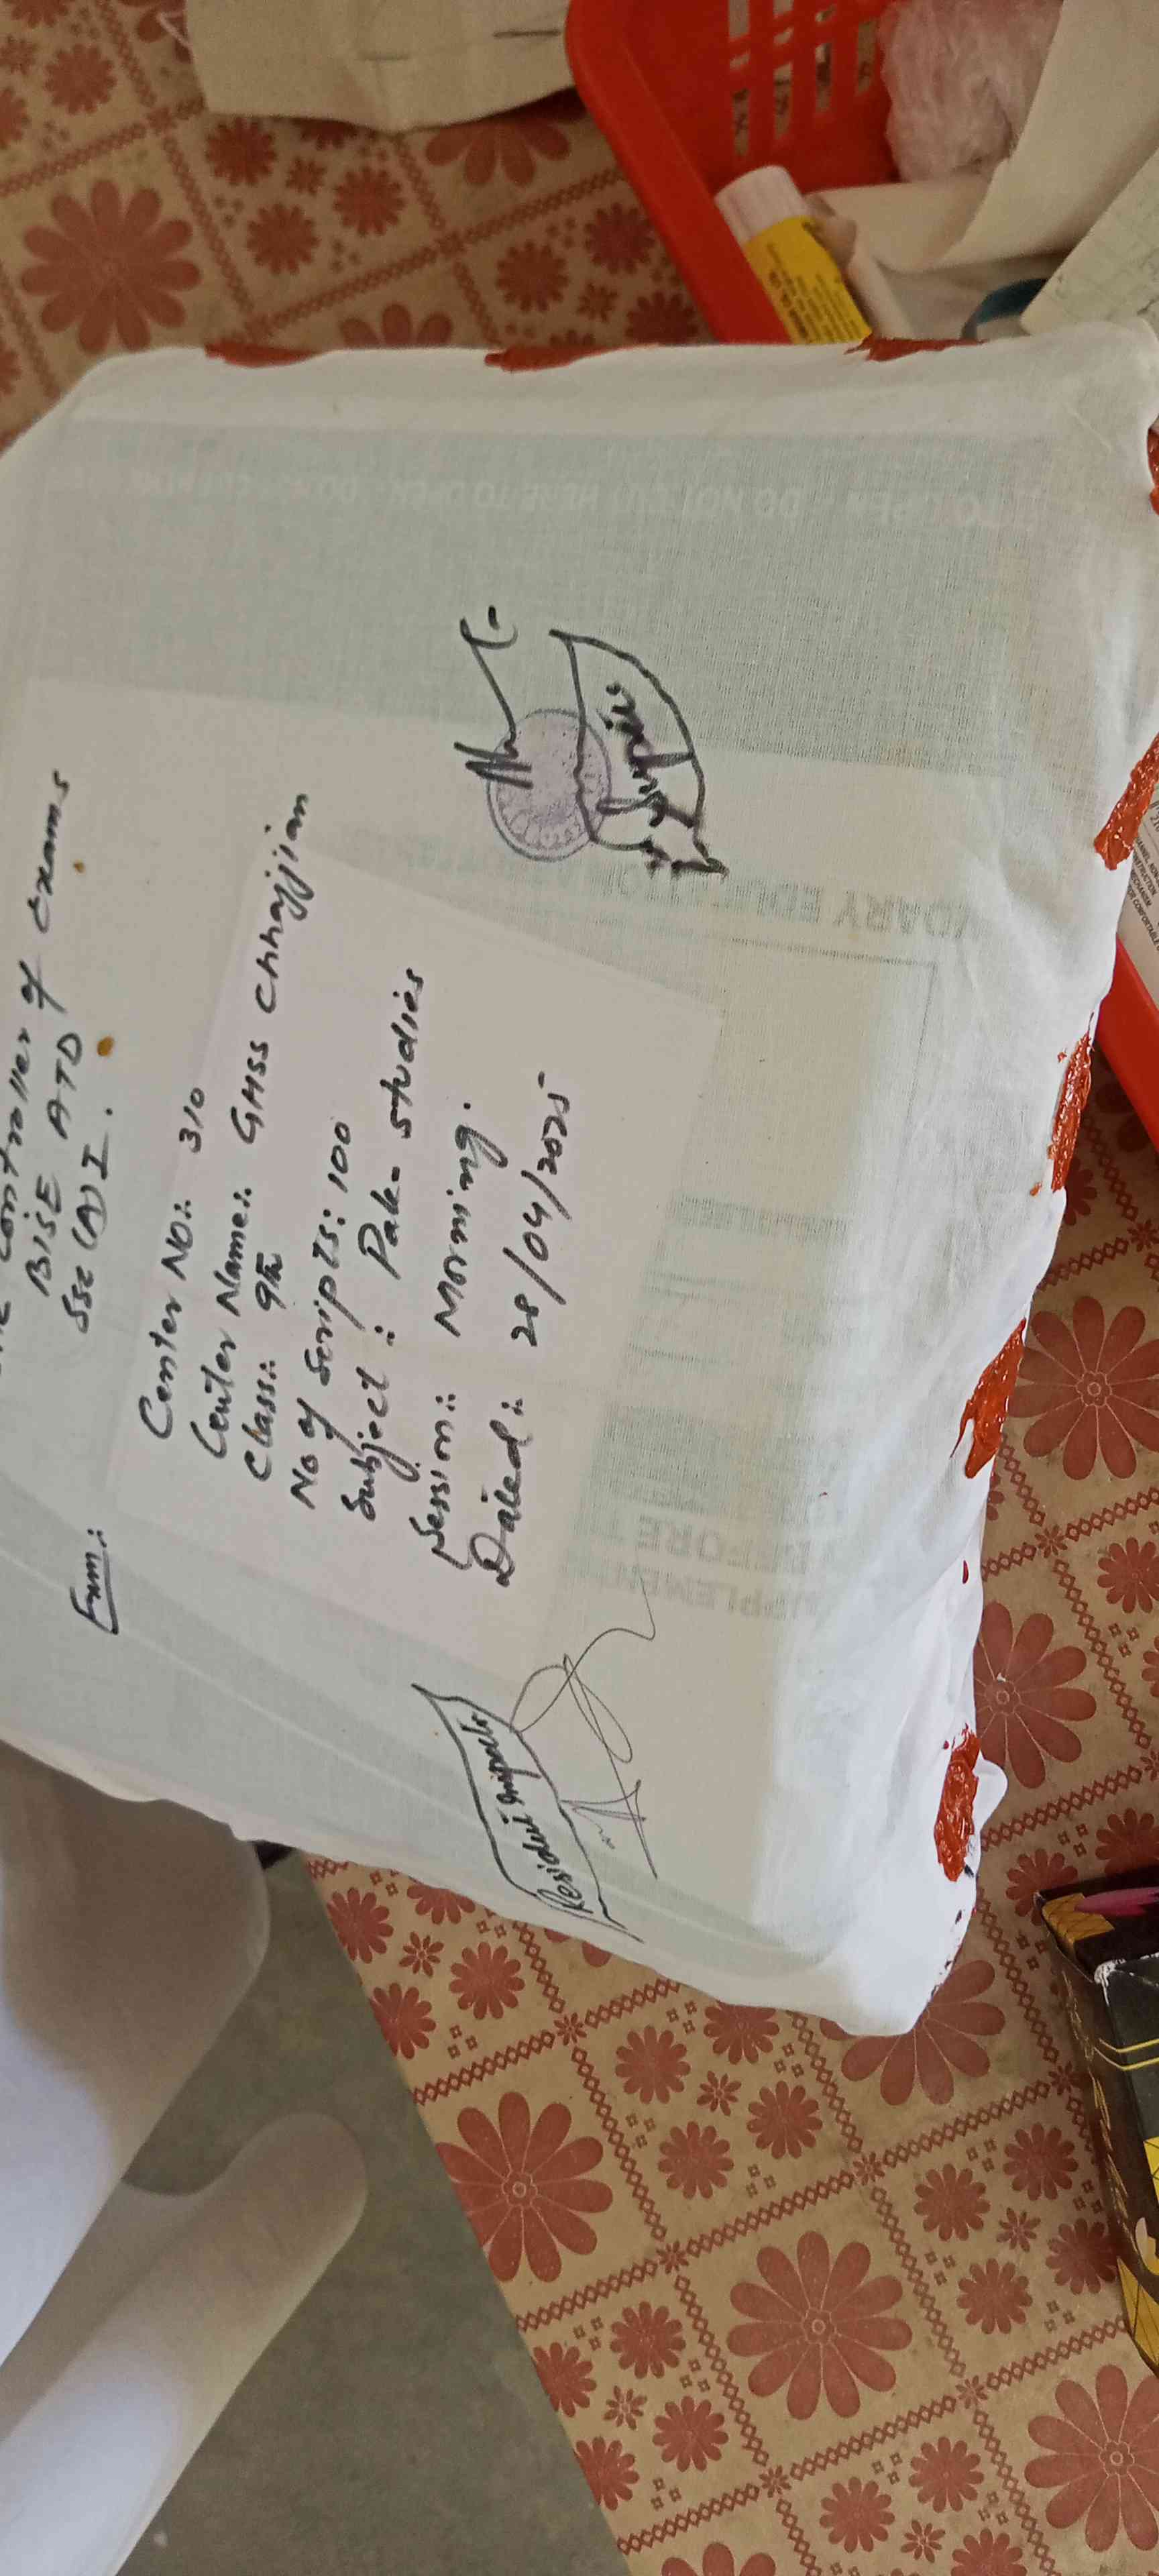 Controller of Exams
BISE ATD
SSC (A) I.
From:
Center No: 310
Center Name: GHSS Chhajjian
Class: 9th
No of Scripts: 100
Subject: Pak-studies
Session: Morning.
Dated: 28/04/2025
Resident Inspector
DO NOT CUT HERE TO OPEN - DO